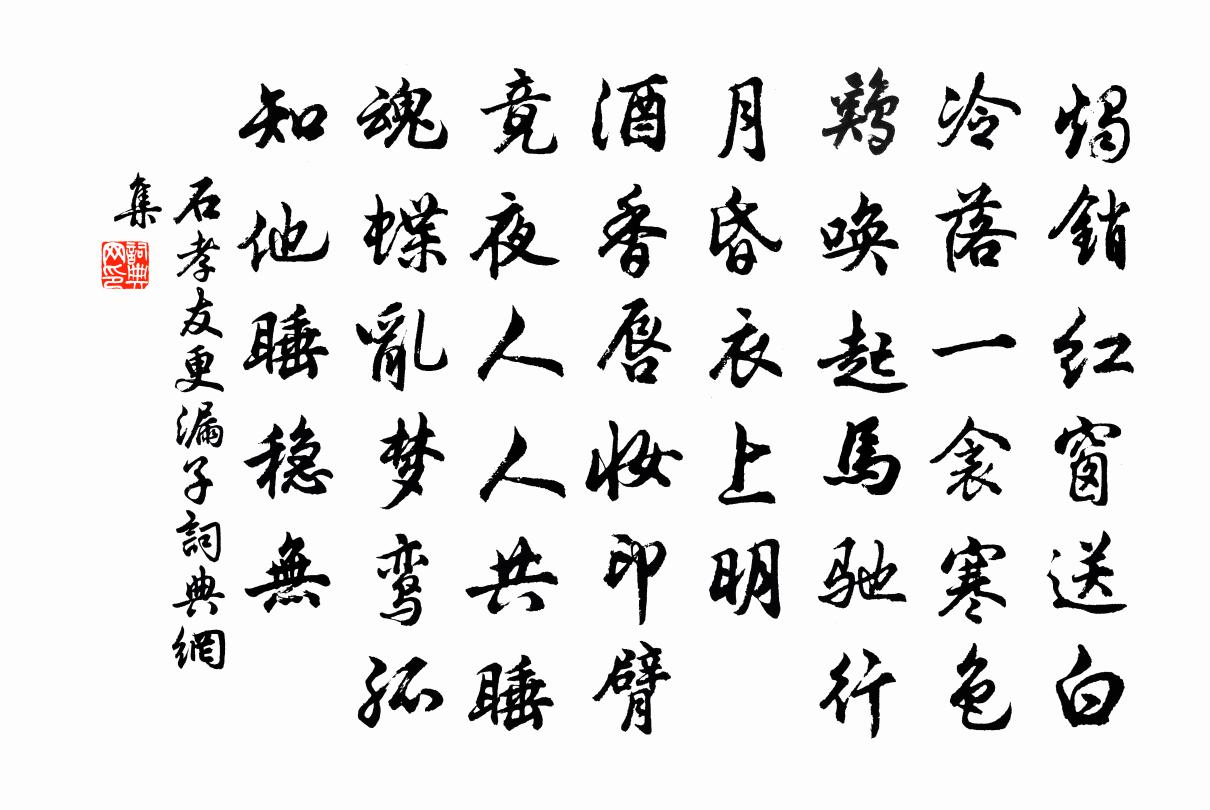 燭銷红窗送白
冷落一衾寒色
鷄唤起馬驰行
月昏衣上明
酒香唇妆印臂
竟夜人人共睡
魂蝶亂梦鸾孤
知他睡稳無
石孝友更漏子詞典網
集
詞典网印